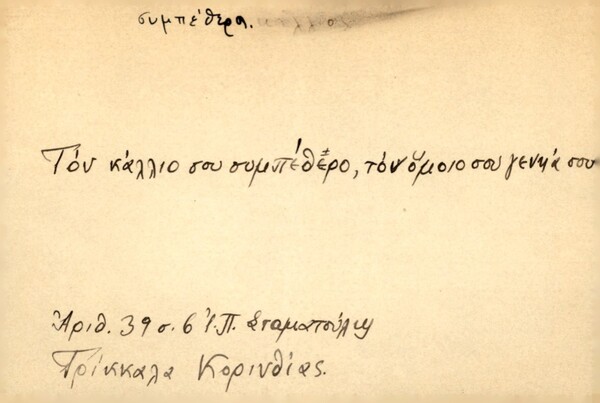 συμπέθερα.
Τόν κάλλιο σου συμπέθερο, τόν ὅμοιο σου γενιά σου
Ἀριθ. 39 σ. 6 Ἰ. Π. Σταματούλης
Τρίκκαλα Κορινθίας.